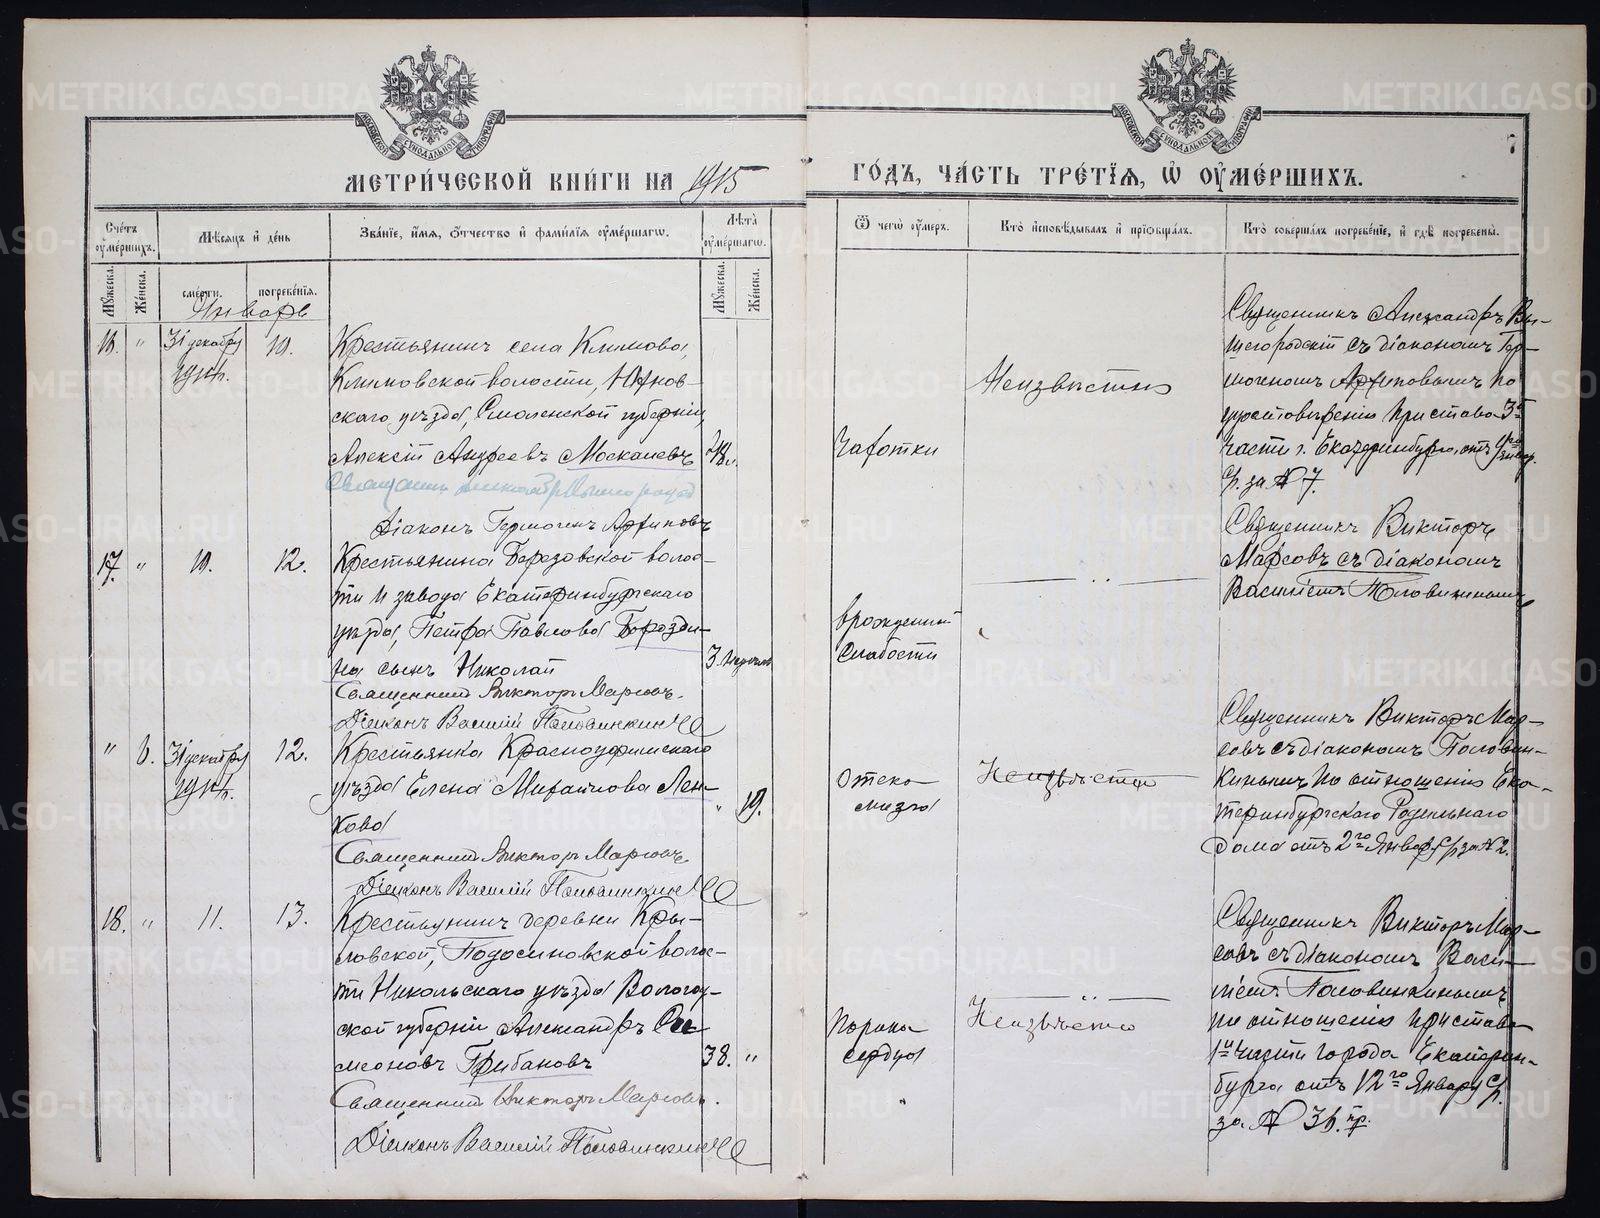 МЕТРИ́ЧЕСКОЙ КНИ́ГИ НА 1915
ГО́ДЪ, ЧА́СТЬ ТРЕ́ТЇѦ, Ѡ҆ ОУ҆МЕ́РШИХЪ.
7
Сче́тъ оу҆ме́ршихъ.
Мѣ́сяцъ и҆ де́нь
Зва́нїе, и҆́мя, ѻ҆́тчество и҆ фами́лїя оу҆ме́ршагѡ.
Лѣ́та оу҆ме́ршагѡ.
Ѿ чегѡ̀ оу҆́меръ.
Кто̀ и҆сповѣ́дывалъ и҆ прїѡбща́лъ.
Кто̀ соверша́лъ погребе́нїе, и҆ гдѣ̀ погребены̀.
Мꙋ́жеска.
Же́нска.
сме́рти.
погребе́нїя.
Мꙋ́жеска.
Же́нска.
Январь
16. " 31 декабря 10.
1914 г.
Крестьянинъ села Климова,
Климовской волости, Юхнов-
скаго уѣзда, Смоленской губерніи,
Алексій Андреевъ Москалевъ
Діаконъ Гермогенъ Архиповъ
48 л.
Чахотки
Неизвѣстно
Священникъ Александръ Вы-
шегородскій съ діакономъ Гер-
могеномъ Архиповымъ по
удостовѣренію Пристава 3й
части г. Екатеринбурга, отъ
с/г. за № 7.
17. " 10. 12.
Крестьянина Березовской волос-
ти и завода Екатеринбургскаго
уѣзда, Петра Павлова Борозди-
на сынъ Николай
Священникъ Викторъ Марсовъ.
Діаконъ Василій Половинкинъ
3 недѣли
врожденной
слабости
Священникъ Викторъ
Марсовъ съ діакономъ
Василіемъ Половинкинымъ
" 6. 31 декабря 12.
1914 г.
Крестьянка Красноуфимскаго
уѣзда Елена Михайлова Лен-
кова
Священникъ Викторъ Марсовъ
Діаконъ Василій Половинкинъ
" 19.
Отека
мозга
Неизвѣстно
Священникъ Викторъ Мар-
совъ съ діакономъ Половин-
кинымъ по отношенію Ека-
теринбургскаго Родильнаго
Дома отъ 2го Января с/г за № 2.
18. " 11. 13.
Крестьянинъ деревни Кры-
ловской, Подосиновской волос-
ти Никольскаго уѣзда Вологод-
ской губерніи Александръ Си-
меоновъ Грибановъ
Священникъ Викторъ Марсовъ.
Діаконъ Василій Половинкинъ
38. "
Порока
сердца
Неизвѣстно
Священникъ Викторъ Мар-
совъ съ діакономъ Васи-
ліемъ Половинкинымъ
по отношенію Пристава
1й части города Екатерин-
бурга отъ 12го Января с/г.
за № 36.